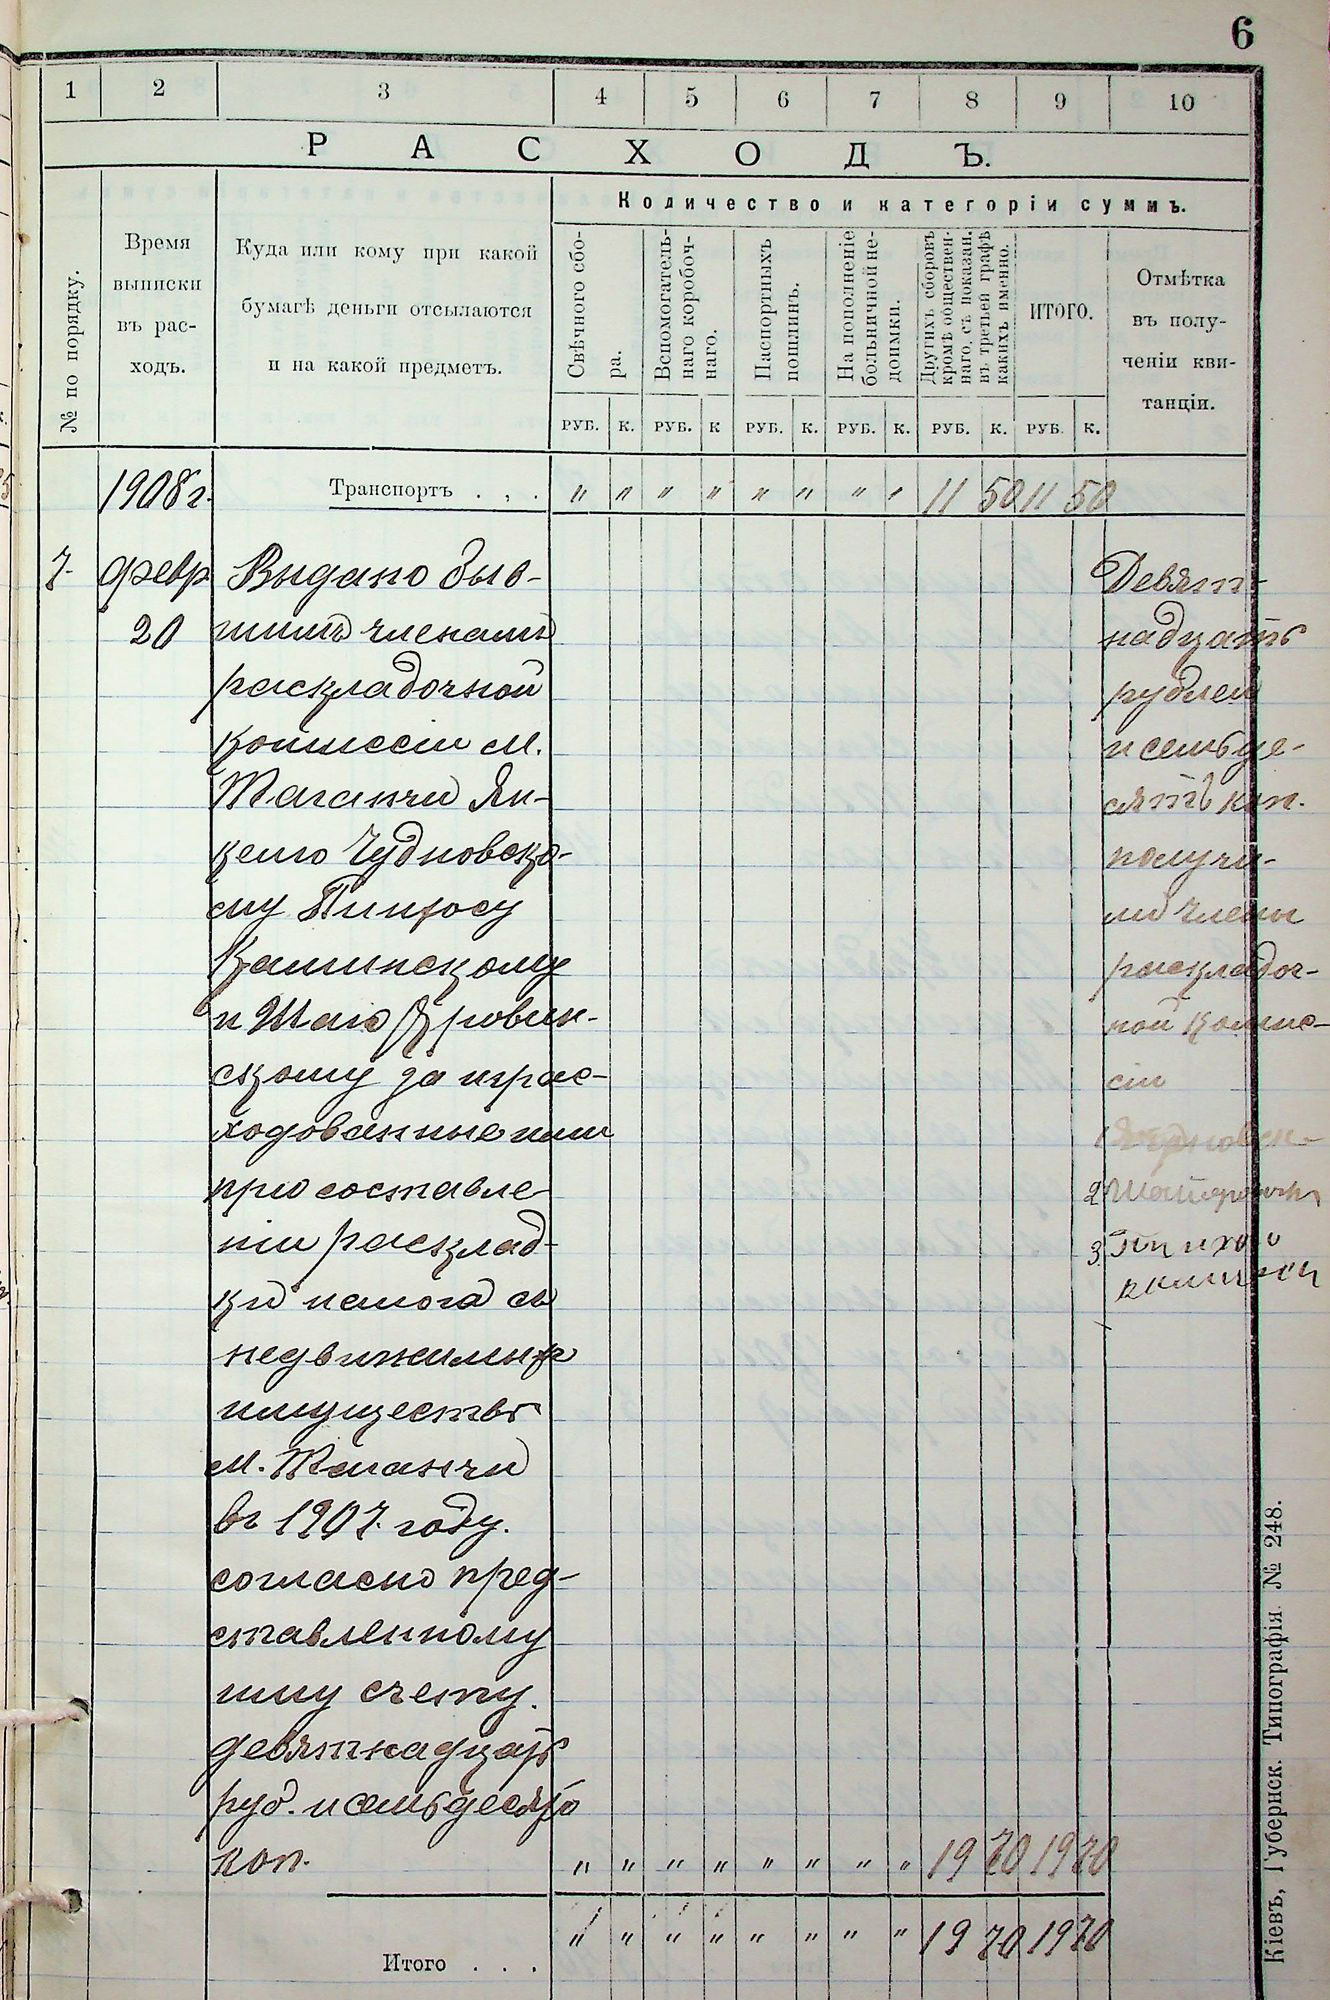 6
1 2 3 4 5 6 7 8 9 10
РАСХОДЪ.
№ по порядку.
Время
выписки
въ рас-
ходъ.
Куда или кому при какой
бумагѣ деньги отсылаются
и на какой предметъ.
Количество и категоріи суммъ.
Свѣчного сбо-
ра.
Вспомогатель-
наго коробоч-
наго.
Паспортныхъ
пошлинъ.
На пополненіе
больничной не-
доимки.
Другихъ сборовъ
кромѣ обществен-
наго, съ показан.
въ третьей графѣ
какихъ именно.
ИТОГО.
Отмѣтка
въ полу-
ченіи кви-
танціи.
РУБ. К. РУБ. К РУБ. К. РУБ. К. РУБ. К. РУБ. К.
1908 г. Транспортъ . , . " " " " " " " " 11 50 11 50
7. Февр
20
Выдано быв-
шимъ членамъ
раскладочной
коммиссіи М.
Таганчи Ян-
келю Чудновско-
му Пинхосу
Калинскому
и Шаю
скому за израс-
ходованные ими
при составле-
ніи расклад-
ки налога съ
недвижимыхъ
имуществъ
м. Таганчи
въ 1907 году.
согласно пред-
ставленному
ими счету.
девятнадцать
руб. и семьдесятъ
коп. " " " " " " " " 19 70 19 70
Девят-
надцать
рублей
и семьде-
сятъ коп.
получи-
ли члены
раскладоч-
ной комис-
сіи
1
2
3. Пинхос
Итого . . . " " " " " " " " 19 70 19 70
Кіевъ, Губернск. Типографія. № 248.